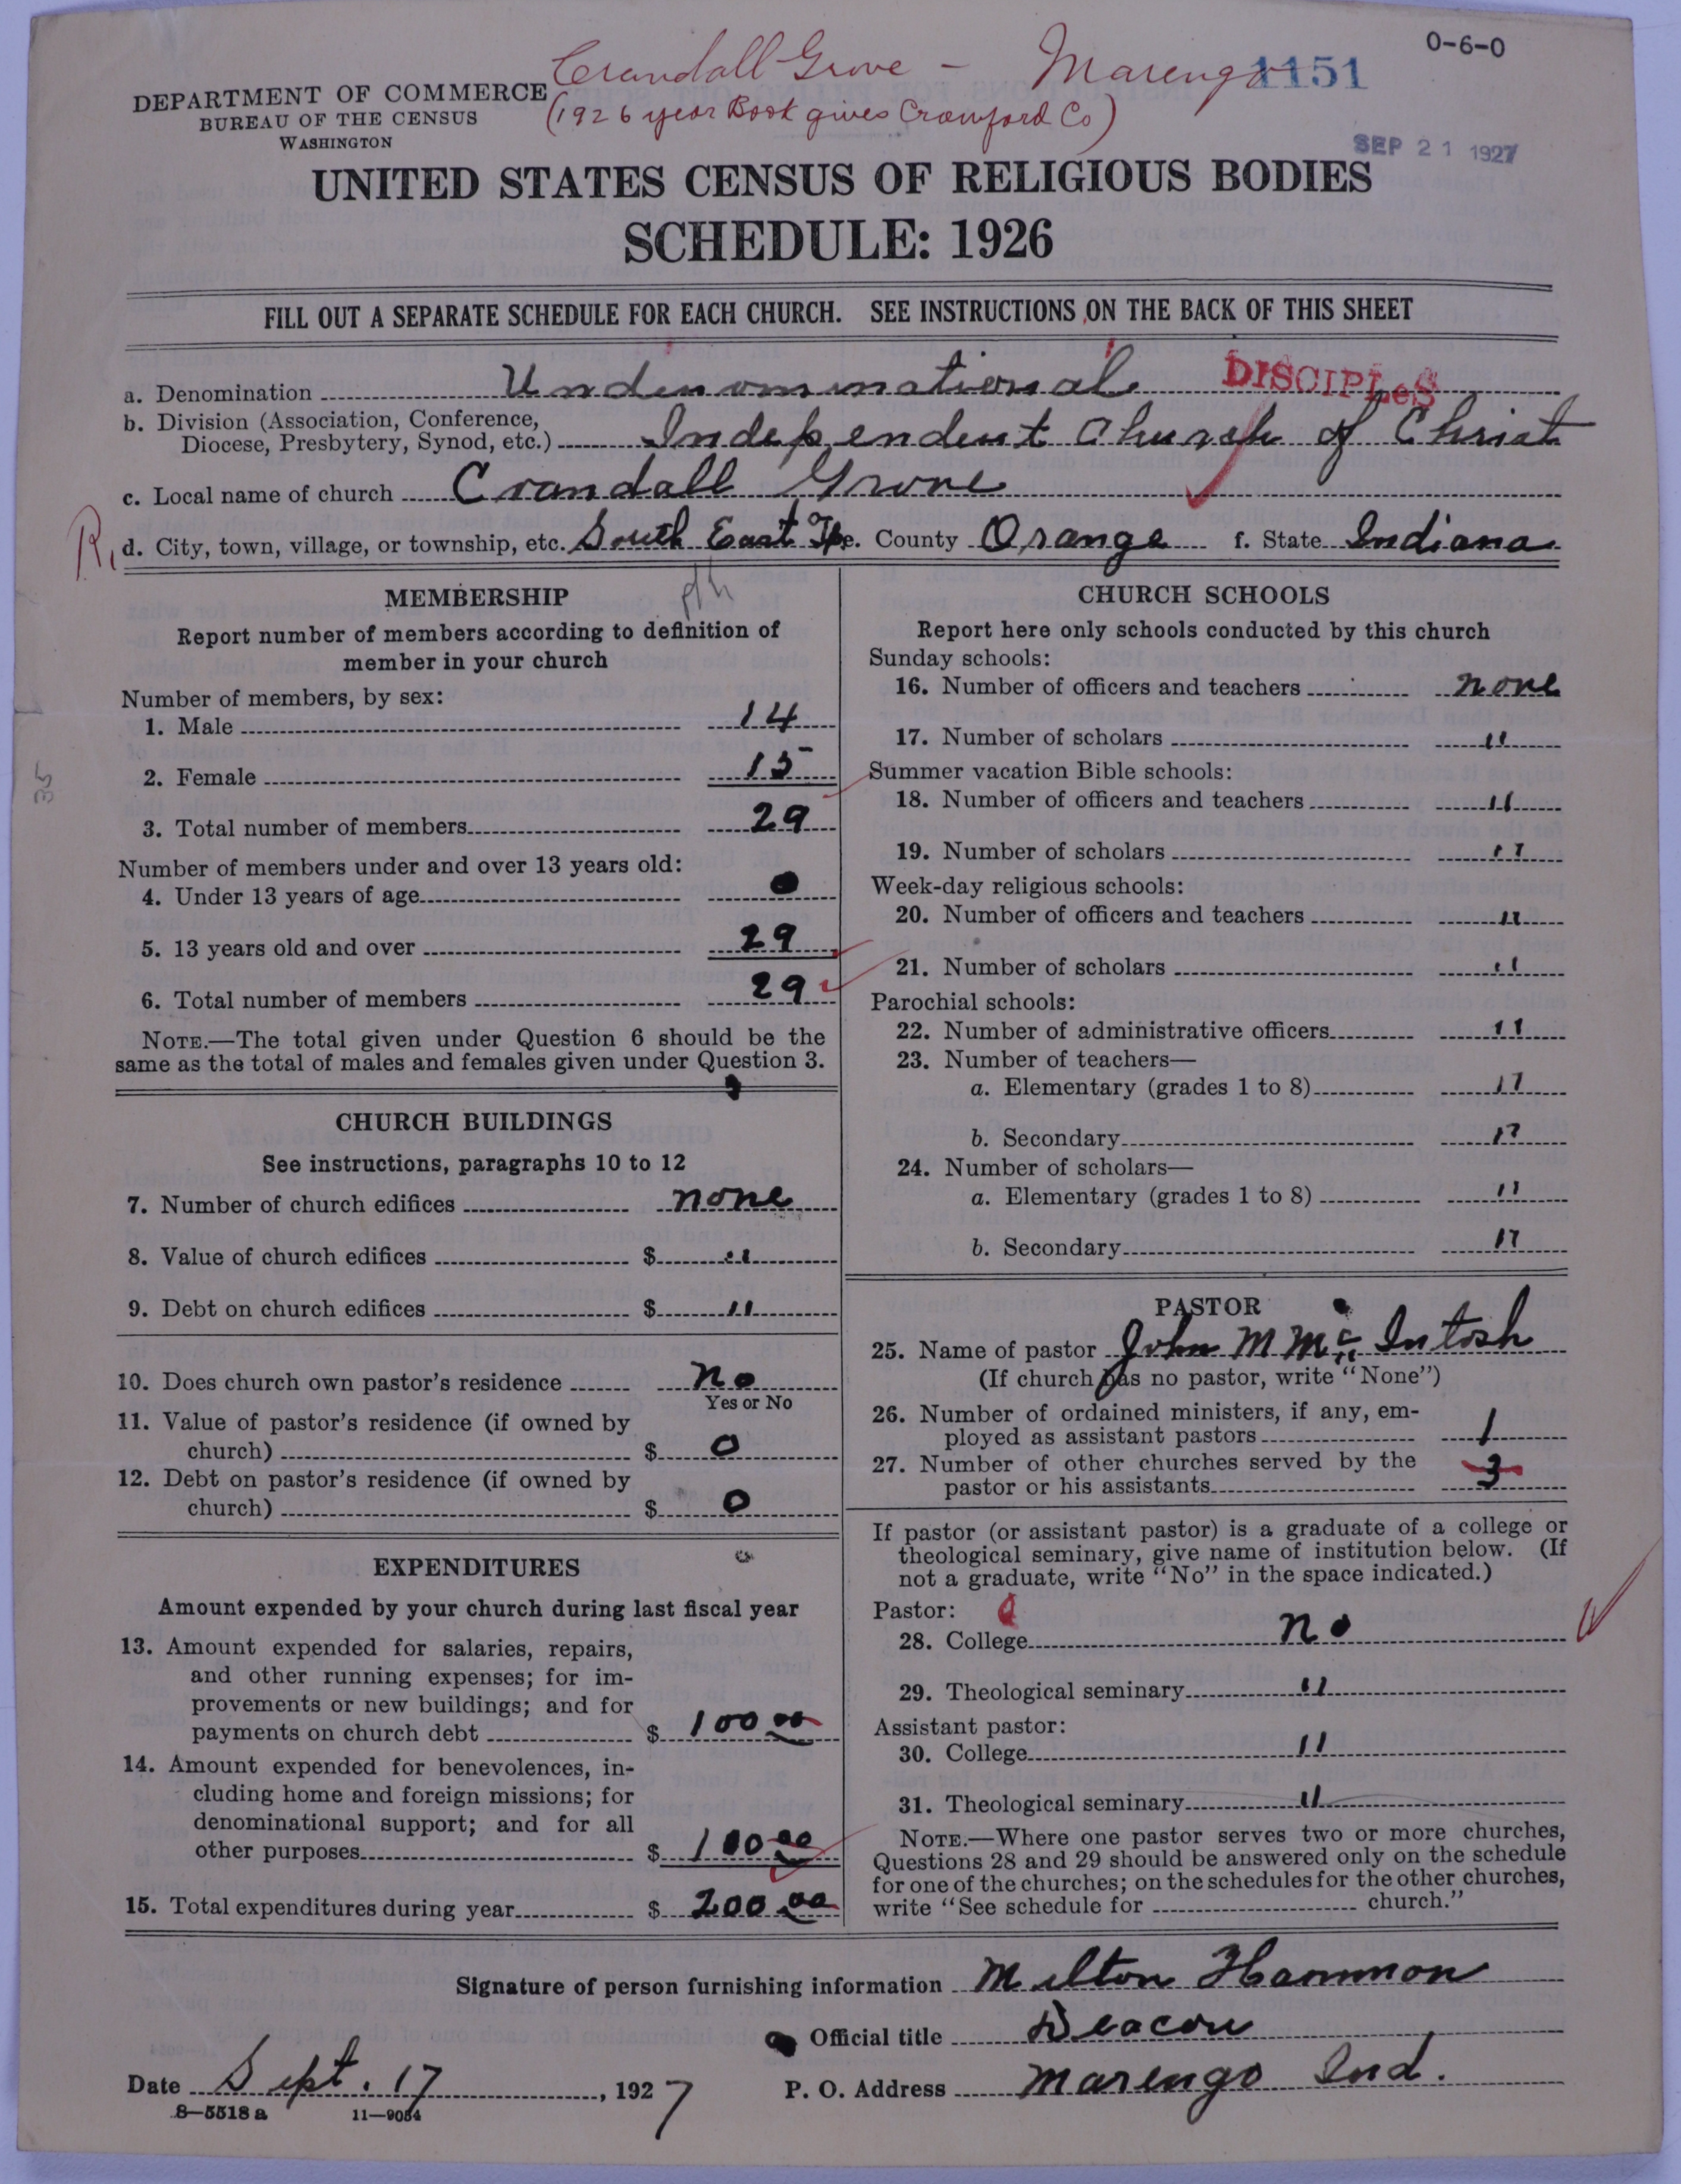 0-6-0
Crandall Grove - Marengo 1151
DEPARTMENT OF COMMERCE
(1926 year Book gives Crawford Co)
BUREAU OF THE CENSUS
WASHINGTON
SEP 21 1927
UNITED STATES CENSUS OF RELIGIOUS BODIES
SCHEDULE: 1926
FILL OUT A SEPARATE SCHEDULE FOR EACH CHURCH. SEE INSTRUCTIONS ON THE BACK OF THIS SHEET
a. Denomination Undenominational DISCIPLeS
b. Division (Association, Conference,
Diocese, Presbytery, Synod, etc.) Independent Church of Christ
c. Local name of church Crandall Grove
R, d. City, town, village, or township, etc. South East Tp e. County Orange f. State Indiana
MEMBERSHIP
Report number of members according to definition of
member in your church
Number of members, by sex:
1. Male 14
2. Female 15
35
3. Total number of members 29
Number of members under and over 13 years old:
4. Under 13 years of age
5. 13 years old and over 29
6. Total number of members 29
NOTE.—The total given under Question 6 should be the
same as the total of males and females given under Question 3.
CHURCH BUILDINGS
See instructions, paragraphs 10 to 12
7. Number of church edifices none
8. Value of church edifices $ "
9. Debt on church edifices $ "
10. Does church own pastor's residence no
Yes or No
11. Value of pastor's residence (if owned by
church) $ 0
12. Debt on pastor's residence (if owned by
church) $ 0
EXPENDITURES
Amount expended by your church during last fiscal year
13. Amount expended for salaries, repairs,
and other running expenses; for im-
provements or new buildings; and for
payments on church debt $ 100 00
14. Amount expended for benevolences, in-
cluding home and foreign missions; for
denominational support; and for all
other purposes $ 100 00
15. Total expenditures during year $ 200 00
CHURCH SCHOOLS
Report here only schools conducted by this church
Sunday schools:
16. Number of officers and teachers none
17. Number of scholars "
Summer vacation Bible schools:
18. Number of officers and teachers "
19. Number of scholars "
Week-day religious schools:
20. Number of officers and teachers "
21. Number of scholars "
Parochial schools:
22. Number of administrative officers "
23. Number of teachers—
a. Elementary (grades 1 to 8) "
b. Secondary "
24. Number of scholars—
a. Elementary (grades 1 to 8) "
b. Secondary "
PASTOR
25. Name of pastor John M Mc Intosh
(If church has no pastor, write "None")
26. Number of ordained ministers, if any, em-
ployed as assistant pastors 1
27. Number of other churches served by the
pastor or his assistants 3
If pastor (or assistant pastor) is a graduate of a college or
theological seminary, give name of institution below. (If
not a graduate, write "No" in the space indicated.)
Pastor:
28. College no
29. Theological seminary "
Assistant pastor:
30. College "
31. Theological seminary "
NOTE.—Where one pastor serves two or more churches,
Questions 28 and 29 should be answered only on the schedule
for one of the churches; on the schedules for the other churches,
write "See schedule for church."
Signature of person furnishing information Milton Hammon
Official title Deacon
Date Sept. 17, 1927 P. O. Address Marengo Ind.
8—5518 a 11—9054